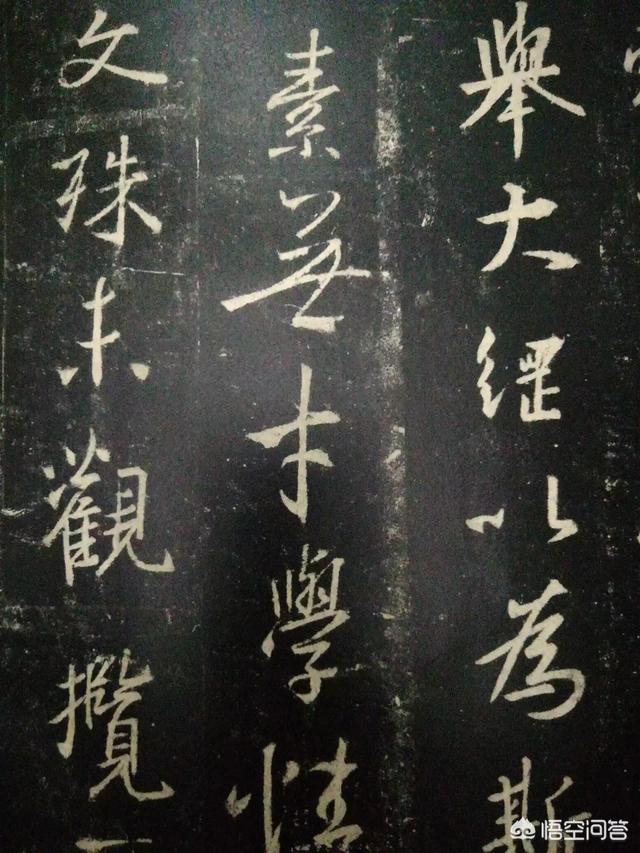 舉大綱以為斯
素無才學情
文殊未觀攬
悟空问答